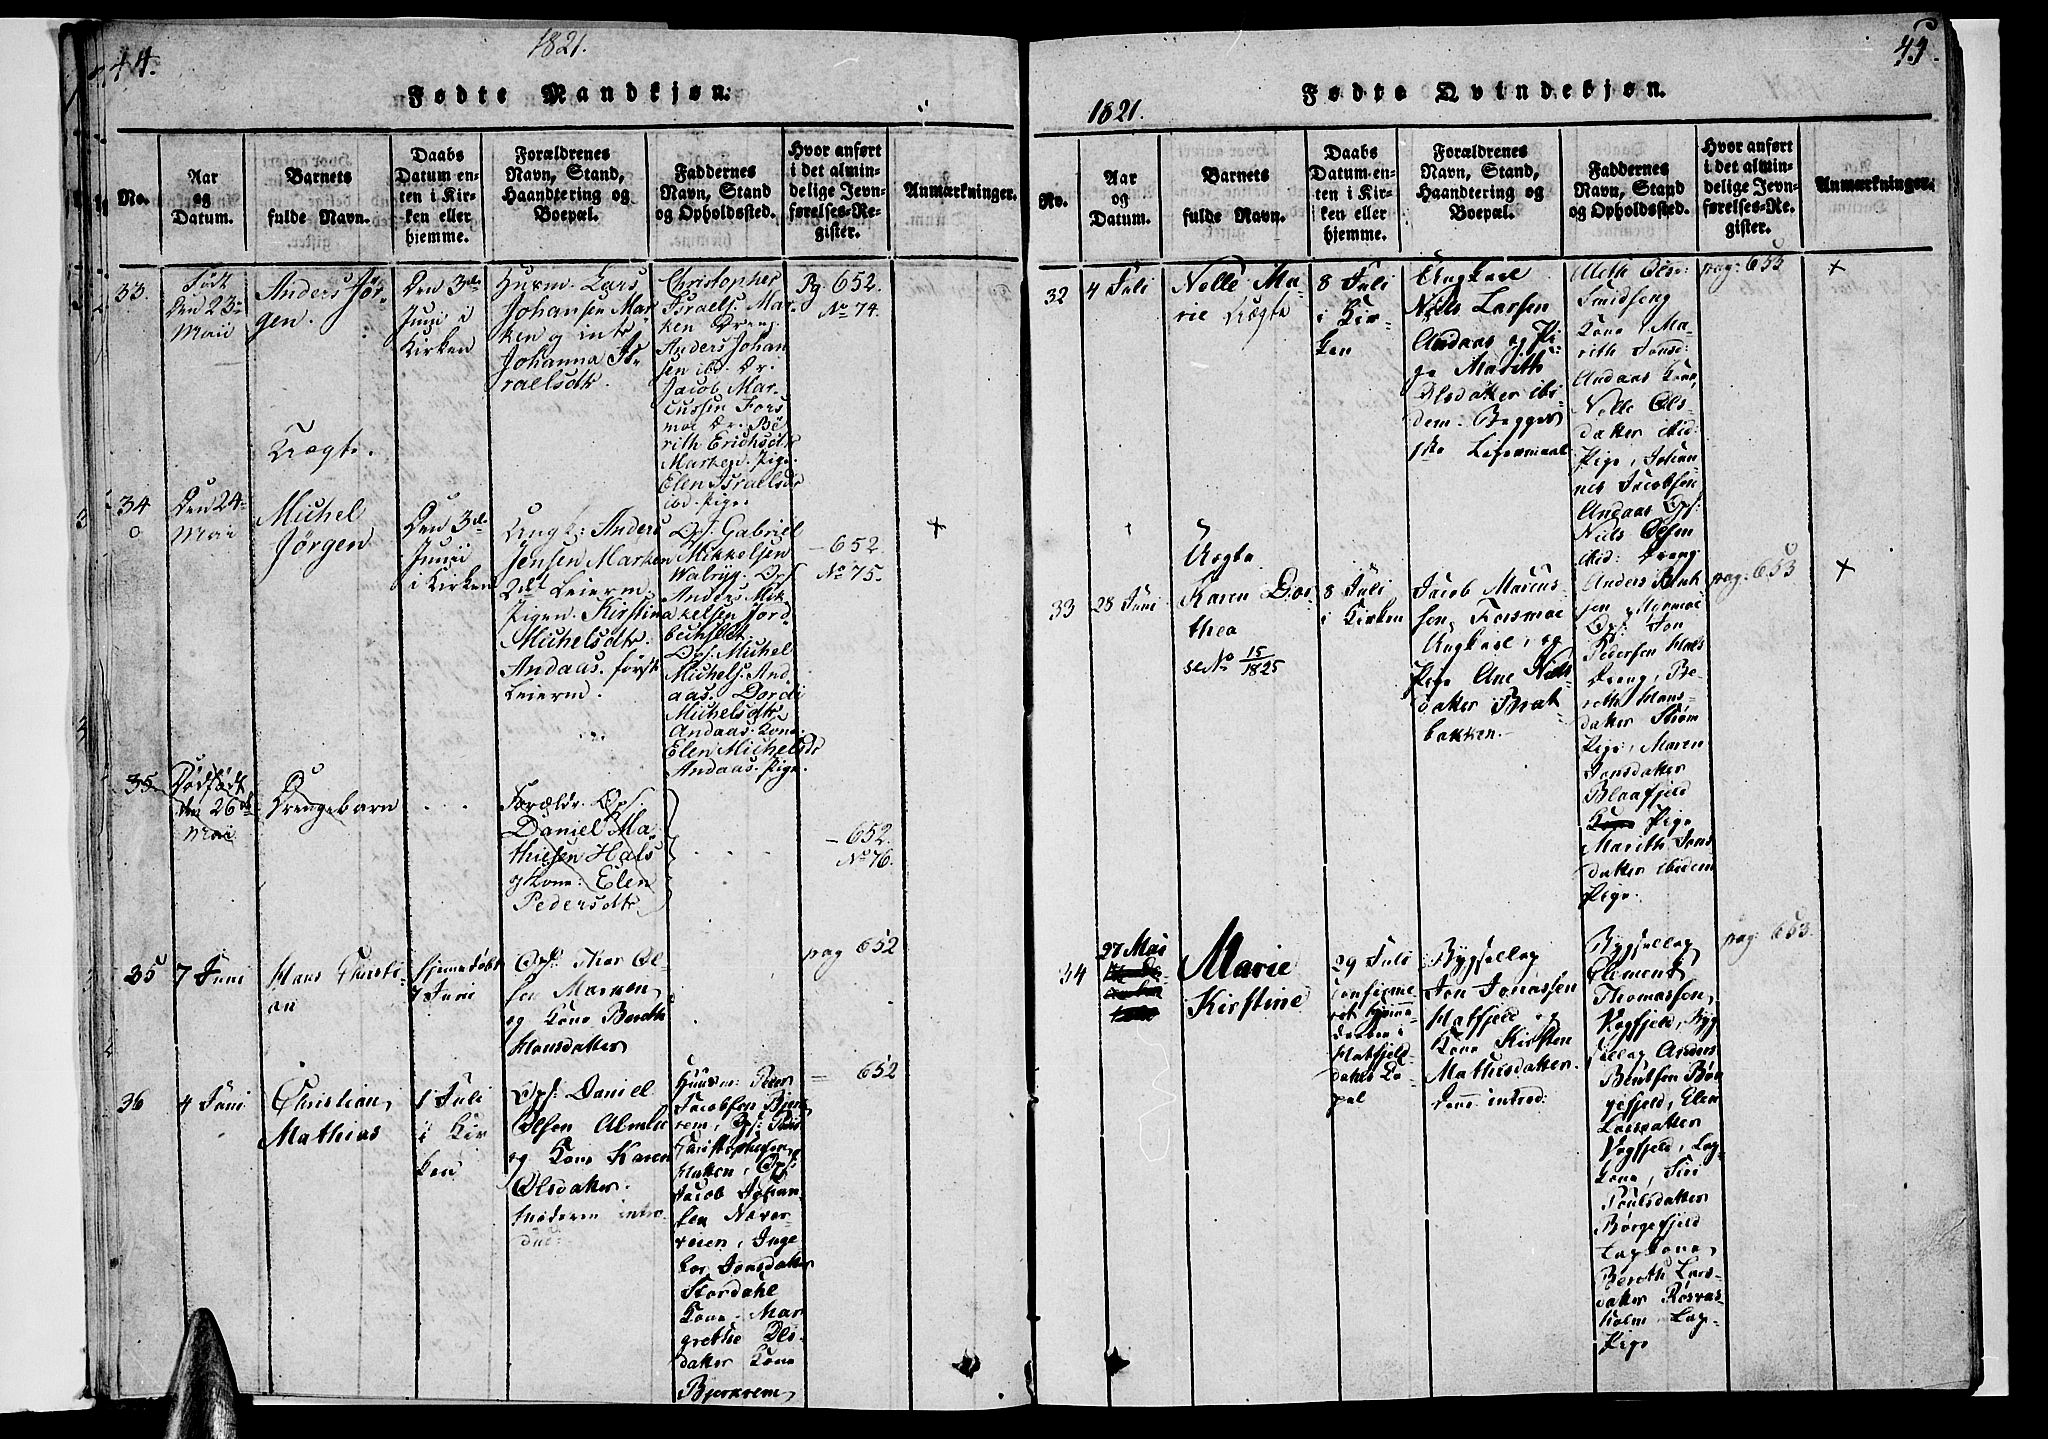 44.
1821.
Fødte Mandkjøn.
No.
Aar
og
Datum.
Barnets
fulde Navn.
Daabs
Datum en-
ten i Kir-
ken eller
hjemme.
Forældrenes
Navn, Stand,
Haandtering og
Boepæl.
Faddernes
Navn, Stand
og Opholdssted.
Hvor anført
i det almin-
delige Jevn-
førelses-Re-
gister.
Anmærkninger.
33.
Født
Den 23
Maii
Anders Jør-
gen.
Uægte.
Den 3de
Junii i
Kirken
Huusm. Lars
Johansen Mar-
ken og
Johanna Is-
raelsdtr.
Christopher
Israels. Mar-
ken Dreng.
Anders Johan
sen ibd. Dr.
Jacob Mar-
cussen Fors
moe Dr. Be
rith Erichsdtr
Marken. Pige.
Elen Israelsdr
ibd. Pige
Pg 652.
No 74.
34
Den 24
Mai
Michel
Jørgen
Den 3de
Junii
i Kirken
Ungk: Anders
Jensen Marken
2det Leierm.
Pigen Kirstina
Michelsdtr.
Andaas. først
Leierm.
Ops. Gabriel
Mikkelsen
Walryg. Ops
Anders Mik
kelsen Jord
bechsldt.
Ops. Michel
Michels. And
aas. Dordi
Michelsdtr
Andaas. Kone
Elen Michelsdr
Andaas. Pige
652.
No 75.
+
35
Dødfødt
den 26de
Mai
Drengebarn
Forældr. Ops.
Daniel Ma-
thiesen Hals
og Kone: Elen
Pedersdtr.
652.
No 76.
35
7 Juni
Hans Christi-
an
hjemmedøbt
7 Juni
Ops. Thor Ol-
sen Marken,
og Kone Bereth
Hansdatter
pag 652
36
4 Juni
Christian
Mathias
1 Juli
i Kir
ken
Ops. Daniel
Olsen Almlie
og Kone Karen
Olsdatter.
Moderen intro-
duc:
Huusm: Peder
Jacobsen Bjerk
rem, Ops:
Christophersen
Hatten, Ops:
Jacob Johan-
sen Never-
nesen, Inge
bor Jonsdatter
Stordahl
Kone. Mar
grethe Ols-
datter Kone
Bjerkrem,
652
45.
1821.
Fødte Qvindekjøn.
No.
Aar
og
Datum.
Barnets
fulde Navn.
Daabs
Datum en-
ten i Kir-
ken eller
hjemme.
Forældrenes
Navn, Stand,
Haandtering og
Boepæl.
Faddernes
Navn, Stand
og Opholdssted.
Hvor anført
i det almin-
delige Jevn-
førelses-Re-
gister.
Anmærkninger.
32
4 Juli
Nelle Ma-
rie Uægte
8 Juli
i Kir-
ken
Ungkarl
Niels Larsen
Andaas og Pi-
ge Marith
Olsdatter ibi-
dem. Begges
1ste Leiermaal
Smedseng
Kone, Ma-
rith Jonsd:
Andaas Kone,
Nelle Ols-
datter ibid:
Pige, Johan
nes Jacobsen
Andaas Ops:
Niels Olsen
ibid: Dreng
pag: 653
+
33
28 Juni
Uægte
Karen Dor-
thea
se No 15/1825
8 Juli
i Kirken
Jacob Marcus-
sen Forsmoe
Ungkarl, og
Pige Ane Niels-
datter Brat-
bakken.
Anders Bent
sen
Ops: Jon
Pedersen Hals
Dreng, Be-
reth Hans-
datter Strøm
Pige, Maren
Jonsdatter
Blaafjeld
Pige
Marith Jons
datter ibidem
Pige.
pag: 653
+
34
27 Mai
Marie
Kirstine
29 Juli
confirme
ret hjemme-
daaben i
Hatfjeld-
dals Ca-
pel
Bygsellap
Jon Jonassen
Hatfjeld og
Kone Kirsten
Mathisdatter.
Kone introd:
Bygsellap
Clement
Thomassen,
Vegfjeld, Byg
sellap Anders
Bentsen Bør-
gefjeld, Elen
Larsdatter
Vegfjeld, Lap-
kone, Siri
Poulsdatter
Børgefjeld
Lapkone,
Bereth Lars-
datter Røsvas-
holm Lap-
Pige
pag: 653